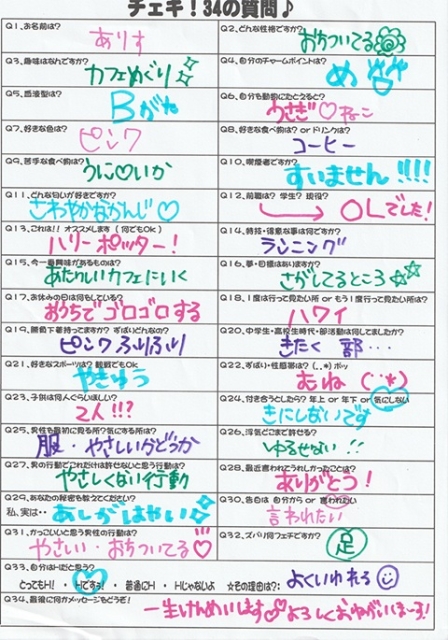 チェキ！34の質問♪
Q1. お名前は？
ありす
Q2. どんな性格ですか？
おちついてる
Q3. 趣味はなんですか？
カフェめぐり
Q4. 自分のチャームポイントは？
め
Q5. 血液型は？
Bがた
Q6. 自分を動物にたとえると？
うさぎ♡ねこ
Q7. 好きな色は？
ピンク
Q8. 好きな食べ物は？ or ドリンクは？
コーヒー
Q9. 苦手な食べ物は？
うに♡いか
Q10. 喫煙者ですか？
すいません!!!!
Q11. どんな匂いが好きですか？
さわやかなかんじ♡
Q12. 前職は？ 学生？ 現役？
OLでした！
Q13. これは！！ オススメします （何でもOk）
ハリーポッター！
Q14. 特技・得意な事は何ですか？
ランニング
Q15. 今一番興味があるものは？
あたらしいカフェにいく
Q16. 夢・目標はありますか？
さがしてるところ☆☆
Q17. お休みの日は何をしている？
おうちでゴロゴロする
Q18. 1度は行って見たい所 or もう1度行って見たい所は？
ハワイ
Q19. 勝負下着持ってますか？ ずばりどんなの？
ピンク ふりふり
Q20. 中学生・高校生時代・部活動は何してましたか？
きたく 部・・・
Q21. 好きなスポーツは？ 観戦でもOk
やきゅう
Q22. ずばり・性感帯は？ (..*) ポッ
むね (˙˙*)
Q23. 子供は何人ぐらいほしい？
2人!!?
Q24. 付き合うとしたら？ 年上 or 年下 or 気にしない
きにしないです
Q25. 男性を最初に見る所？気にする所は？
服・やさしいかどうか
Q26. 浮気どこまで許せる？
ゆるせない!!
Q27. 男の行動でこれだけは許せないと思う行動は？
やさしくない行動
Q28. 最近言われてうれしかったことは？
ありがとう！
Q29. あなたの秘密を教えてください？
私、実は・・ あしがはやい
Q30. 告白は 自分から or 言われたい
言われたい
Q31. かっこいいと思う男性の行動は？
やさしい・おちついてる♡
Q32. ズバリ何フェチですか？
足
Q33. 自分はHだと思う？
とってもH！ ・ Hですぅ！ ・ 普通にH ・ Hじゃないよ ☆その理由は？： よくいわれる
Q34. 最後に何かメッセージをどうぞ！
一生けんめいします♡よろしくおねがいしまーす！